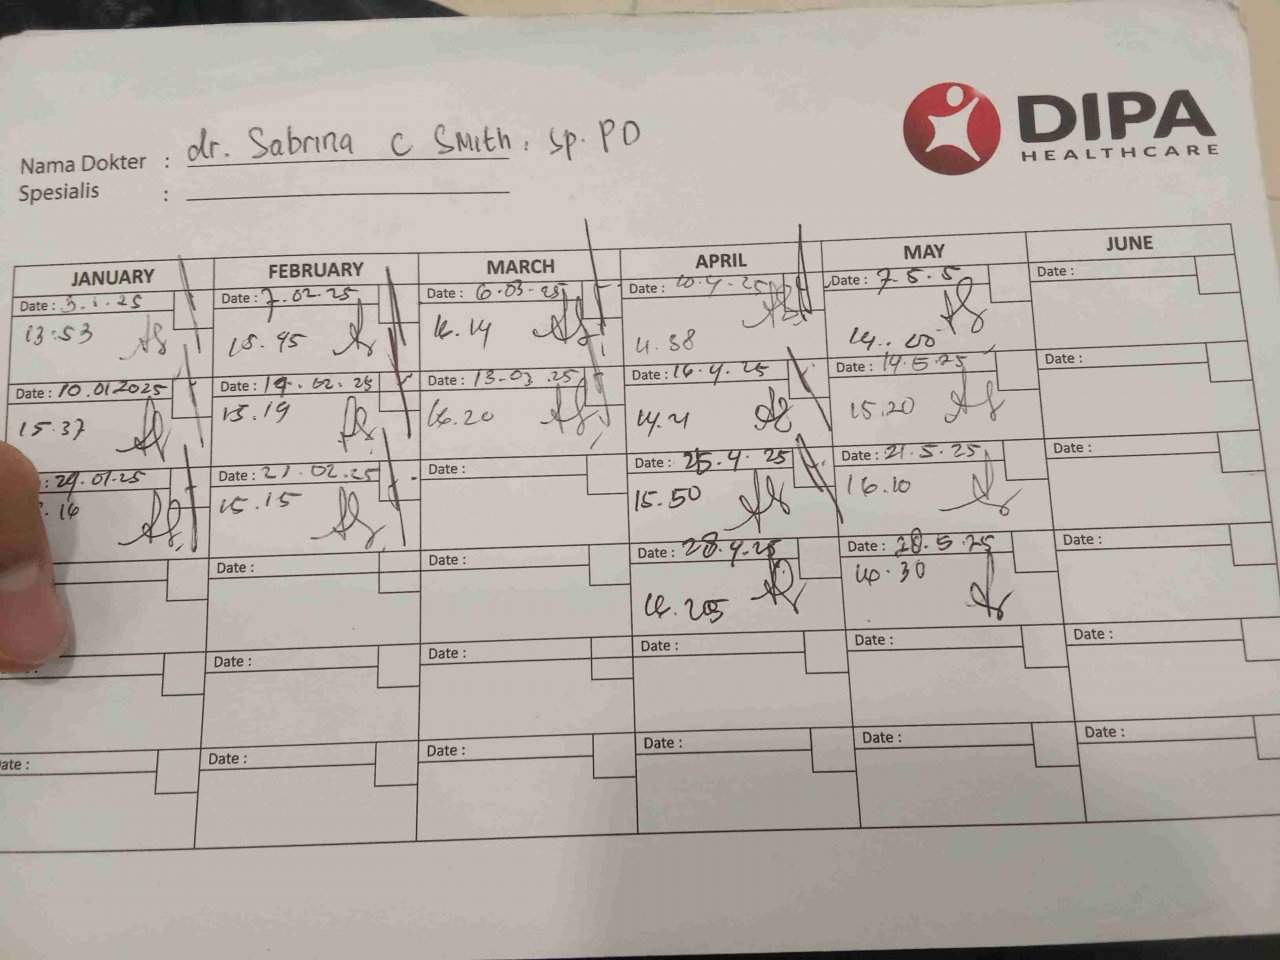 DIPA
HEALTHCARE
Nama Dokter : dr. Sabrina C Smith, Sp. PD
Spesialis :
JANUARY FEBRUARY MARCH APRIL MAY JUNE
Date : 3.1.25 Date : 7.02.25 Date : 6.03.25 Date : 10.4.25 Date : 7.5.5 Date :
13:53 15.45 14.14 14.00
Date : 10.01.2025 Date : 14.02.25 Date : 13.03.25 Date : 16.4.25 Date : 14.5.25 Date :
15.37 15.19 14.20 15.20
: 29.01.25 Date : 21.02.25 Date : Date : 25.4.25 Date : 21.5.25 Date :
15.15 15.50 16.10
Date : Date : Date : 28.4.25 Date : 28.5.25 Date :
14.30
Date : Date : Date : Date : Date :
ate : Date : Date : Date : Date : Date :